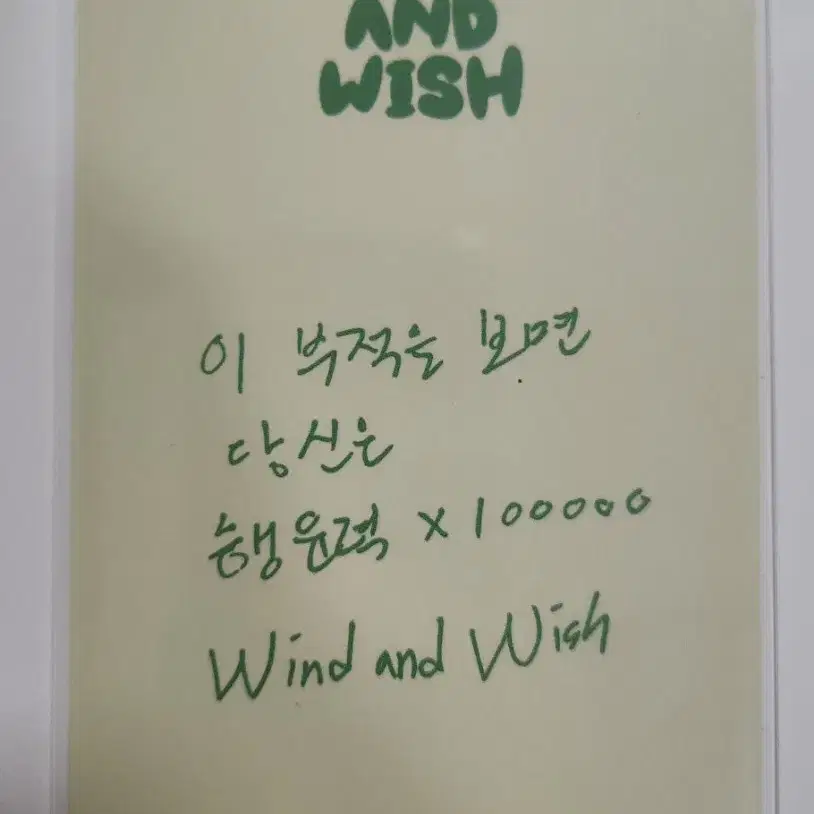 AND
WISH
이 부적을 보면
당신은
행운력 x100000
Wind and Wish